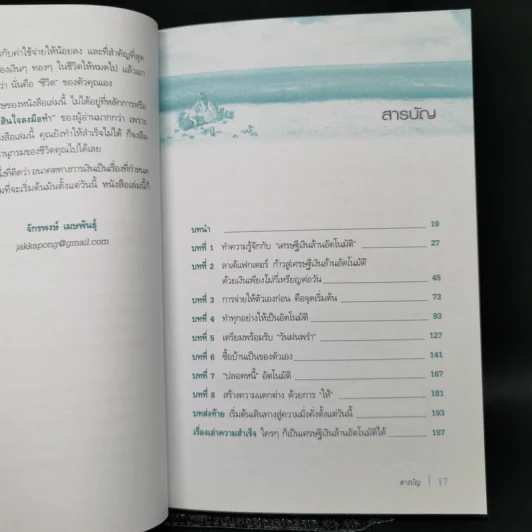 กับค่าใช้จ่ายให้น้อยลง และที่สำคัญที่สุด
องเงินๆ ทองๆ ในชีวิตให้หมดไป แล้วเอา
ว่า นั่นคือ "ชีวิต" ของตัวคุณเอง
ของหนังสือเล่มนี้ ไม่ได้อยู่ที่หลักการหรือ
สินใจลงมือทำ" ของผู้อ่านมากกว่า เพราะ
สือเล่มนี้ คุณยังทำให้สำเร็จไม่ได้ ก็จงลืม
านุกรมของชีวิตคุณไปได้เลย
ที่คิดว่า อนาคตทางการเงินเป็นเรื่องที่กำหนด
มที่จะเริ่มต้นมันตั้งแต่วันนี้ หนังสือเล่มนี้ก็
จักรพงษ์ เมษพันธุ์
jakkapong@gmail.com
สารบัญ
บทนำ 19
บทที่ 1 ทำความรู้จักกับ "เศรษฐีเงินล้านอัตโนมัติ" 27
บทที่ 2 ลาเต้แฟกเตอร์ ก้าวสู่เศรษฐีเงินล้านอัตโนมัติ
ด้วยเงินเพียงไม่กี่เหรียญต่อวัน 45
บทที่ 3 การจ่ายให้ตัวเองก่อน คือจุดเริ่มต้น 73
บทที่ 4 ทำทุกอย่างให้เป็นอัตโนมัติ 93
บทที่ 5 เตรียมพร้อมรับ "วันฝนพรำ" 127
บทที่ 6 ซื้อบ้านเป็นของตัวเอง 141
บทที่ 7 "ปลอดหนี้" อัตโนมัติ 157
บทที่ 8 สร้างความแตกต่าง ด้วยการ "ให้" 181
บทส่งท้าย เริ่มต้นเดินทางสู่ความมั่งคั่งตั้งแต่วันนี้ 193
เรื่องเล่าความสำเร็จ ใครๆ ก็เป็นเศรษฐีเงินล้านอัตโนมัติได้ 197
สารบัญ | 17